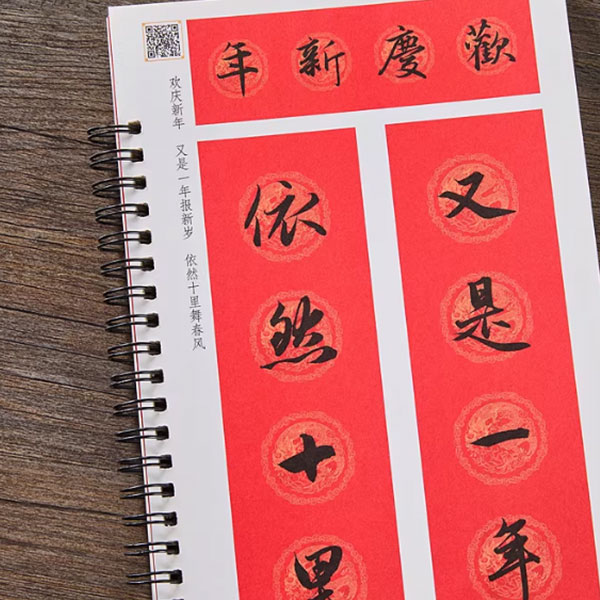 歡慶新年
又是一年
依然十里
欢庆新年 又是一年报新岁 依然十里舞春风